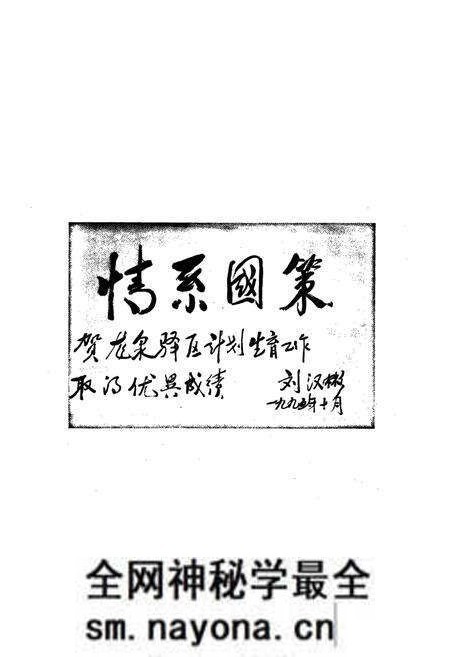 情系國策
贺龙泉驿区计划生育工作
取得优異成绩 刘汉彬
一九九五年十月
全网神秘学最全
sm.nayona.cn